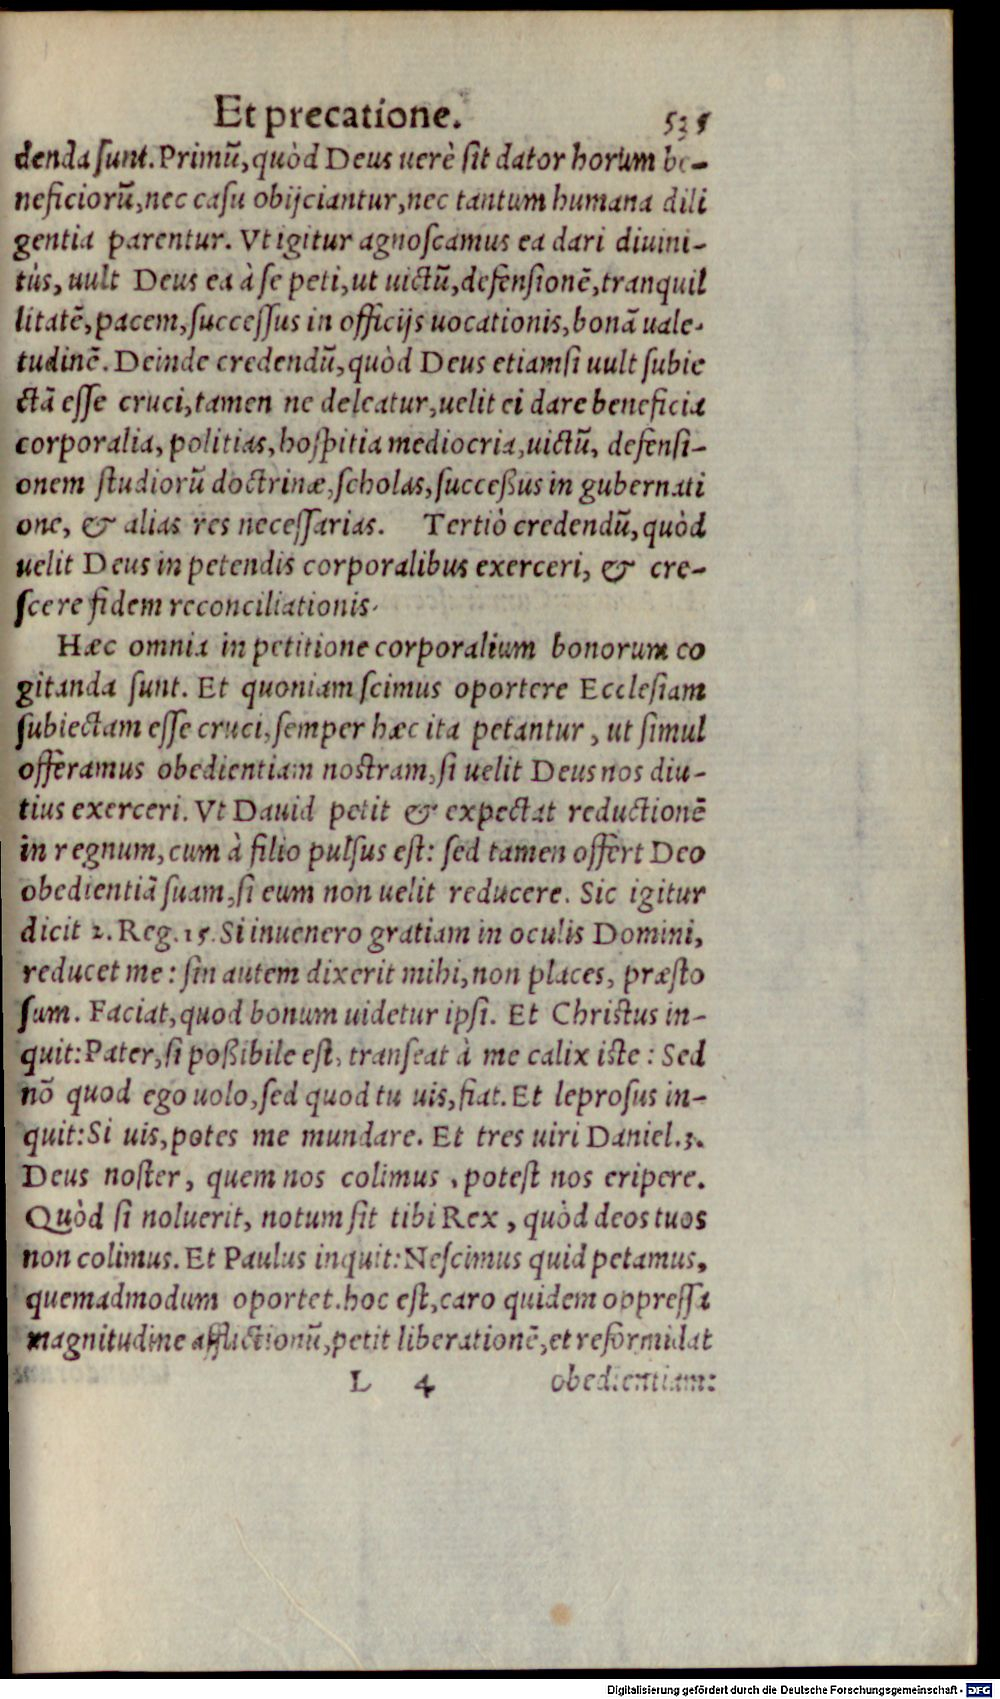 Et precatione. 535
denda sunt. Primũ, quòd Deus uerè sit dator horum be-
neficiorũ, nec casu obijciantur, nec tantum humana dili
gentia parentur. Vt igitur agnoscamus ea dari diuini-
tùs, uult Deus ea à se peti, ut uictũ, defensionẽ, tranquil
litatẽ, pacem, successus in officijs uocationis, bonã uale-
tudinẽ. Deinde credendũ, quòd Deus etiamsi uult subie
ctã esse cruci, tamen ne deleatur, uelit ei dare beneficia
corporalia, politias, hospitia mediocria, uictũ, defensi-
onem studiorũ doctrinæ, scholas, succeßus in gubernati
one, & alias res necessarias. Tertiò credendũ, quòd
uelit Deus in petendis corporalibus exerceri, & cre-
scere fidem reconciliationis.
Hæc omnia in petitione corporalium bonorum co
gitanda sunt. Et quoniam scimus oportere Ecclesiam
subiectam esse cruci, semper hæc ita petantur, ut simul
offeramus obedientiam nostram, si uelit Deus nos diu-
tius exerceri. Vt Dauid petit & expectat reductionẽ
in regnum, cum à filio pulsus est: sed tamen offert Deo
obedientiã suam, si eum non uelit reducere. Sic igitur
dicit 2. Reg. 15. Si inuenero gratiam in oculis Domini,
reducet me: sin autem dixerit mihi, non places, præsto
sum. Faciat, quod bonum uidetur ipsi. Et Christus in-
quit: Pater, si poßibile est, transeat à me calix iste: Sed
nõ quod ego uolo, sed quod tu uis, fiat. Et leprosus in-
quit: Si uis, potes me mundare. Et tres uiri Daniel. 3.
Deus noster, quem nos colimus, potest nos eripere.
Quòd si noluerit, notum sit tibi Rex, quòd deos tuos
non colimus. Et Paulus inquit: Nescimus quid petamus,
quemadmodum oportet. hoc est, caro quidem oppressa
magnitudine afflictionũ, petit liberationẽ, et reformidat
L 4 obedientiam:
Digitalisierung gefördert durch die Deutsche Forschungsgemeinschaft - DFG